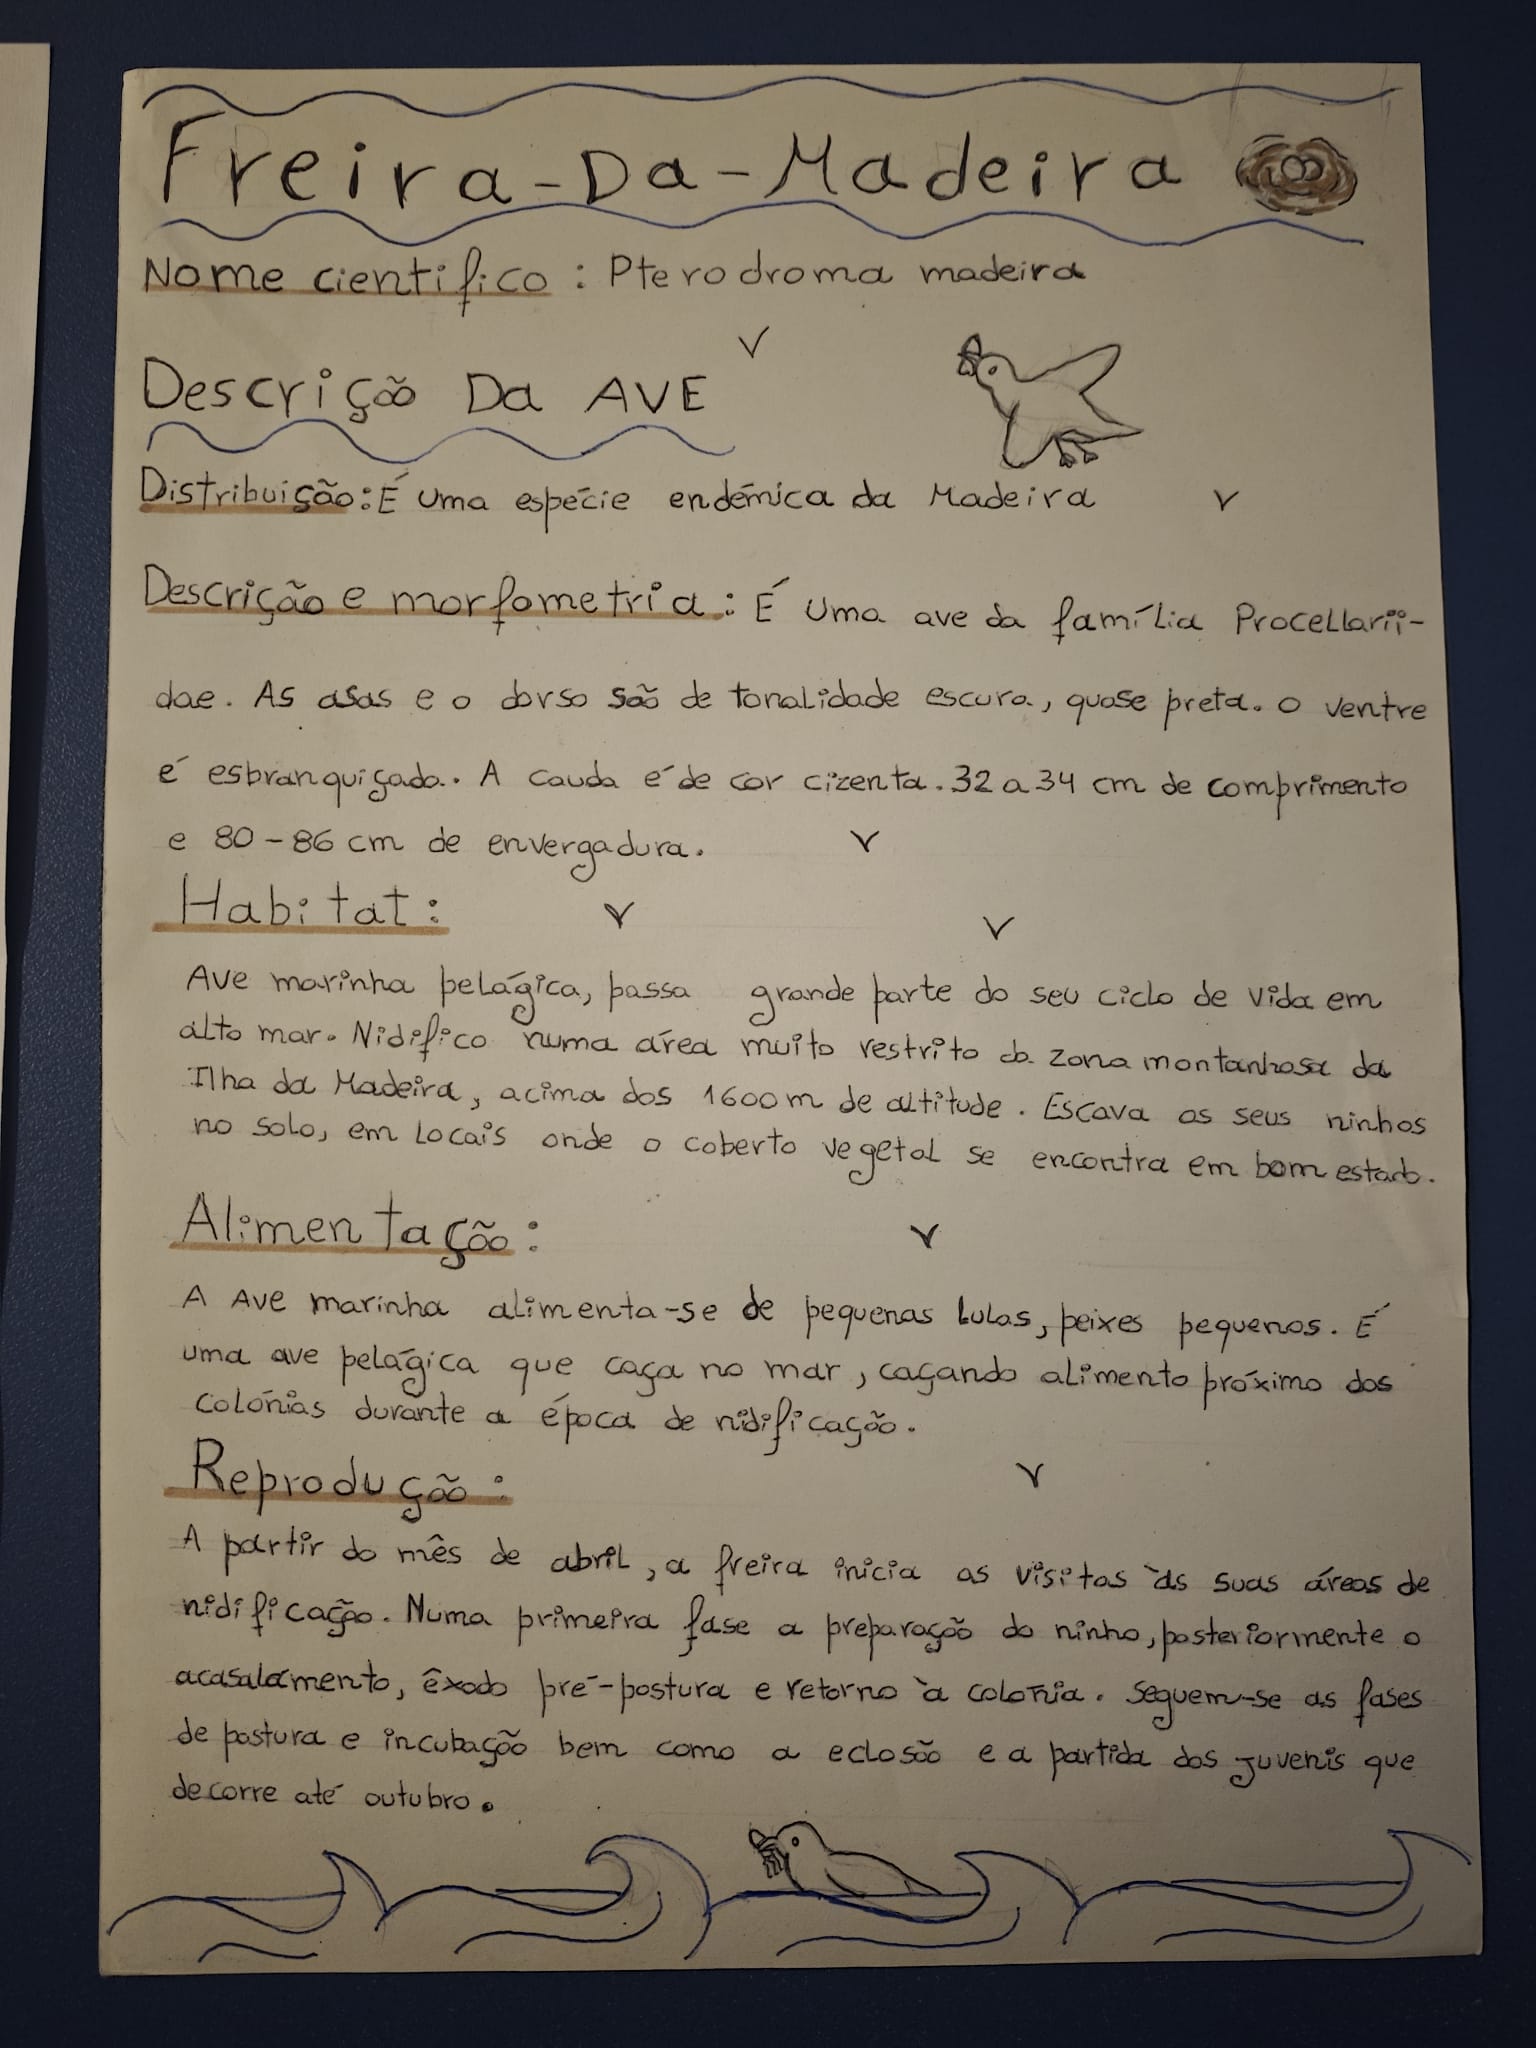 Freira-Da-Madeira
Nome científico : Pterodroma madeira
Descrição Da AVE
Distribuição: É uma espécie endémica da Madeira
Descrição e morfometria: É uma ave da família Procellarii-
dae. As asas e o dorso são de tonalidade escura, quase preta. O ventre
é esbranquiçado. A cauda é de cor cizenta. 32 a 34 cm de comprimento
e 80-86 cm de envergadura.
Habitat:
Ave marinha pelágica, passa grande parte do seu ciclo de vida em
alto mar. Nidifico numa área muito restrito da zona montanhosa da
Ilha da Madeira, acima dos 1600m de altitude. Escava os seus ninhos
no solo, em locais onde o coberto vegetal se encontra em bom estado.
Alimentação:
A Ave marinha alimenta-se de pequenas lulas, peixes pequenos. É
uma ave pelágica que caça no mar, caçando alimento próximo dos
colónias durante a época de nidificação.
Reprodução:
A partir do mês de abril, a freira inicia as visitas às suas áreas de
nidificação. Numa primeira fase a preparação do ninho, posteriormente o
acasalamento, êxodo pré-postura e retorno à colónia. Seguem-se as fases
de postura e incubação bem como a eclosão e a partida dos juvenis que
decorre até outubro.